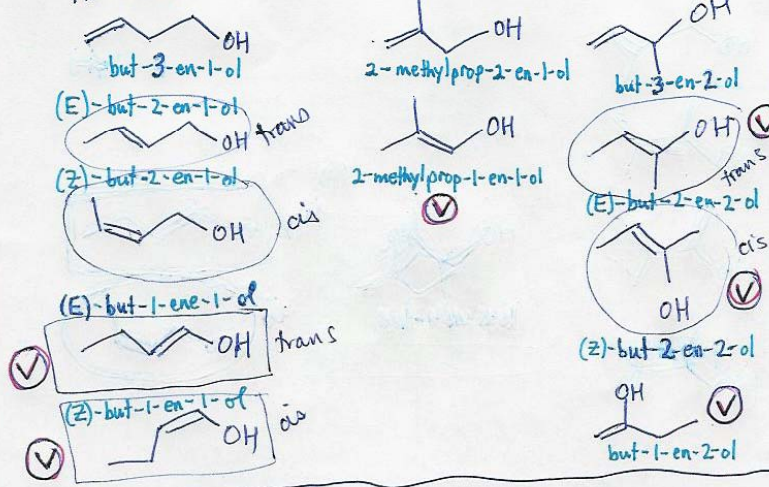 OH
but-3-en-1-ol
(E)-but-2-en-1-ol
OH trans
(Z)-but-2-en-1-ol
OH cis
(E)-but-1-ene-1-ol
V OH trans
(Z)-but-1-en-1-ol
V OH cis
OH
2-methylprop-2-en-1-ol
OH
2-methylprop-1-en-1-ol
V
OH
but-3-en-2-ol
OH V
trans
(E)-but-2-en-2-ol
cis
OH V
(Z)-but-2-en-2-ol
OH V
but-1-en-2-ol